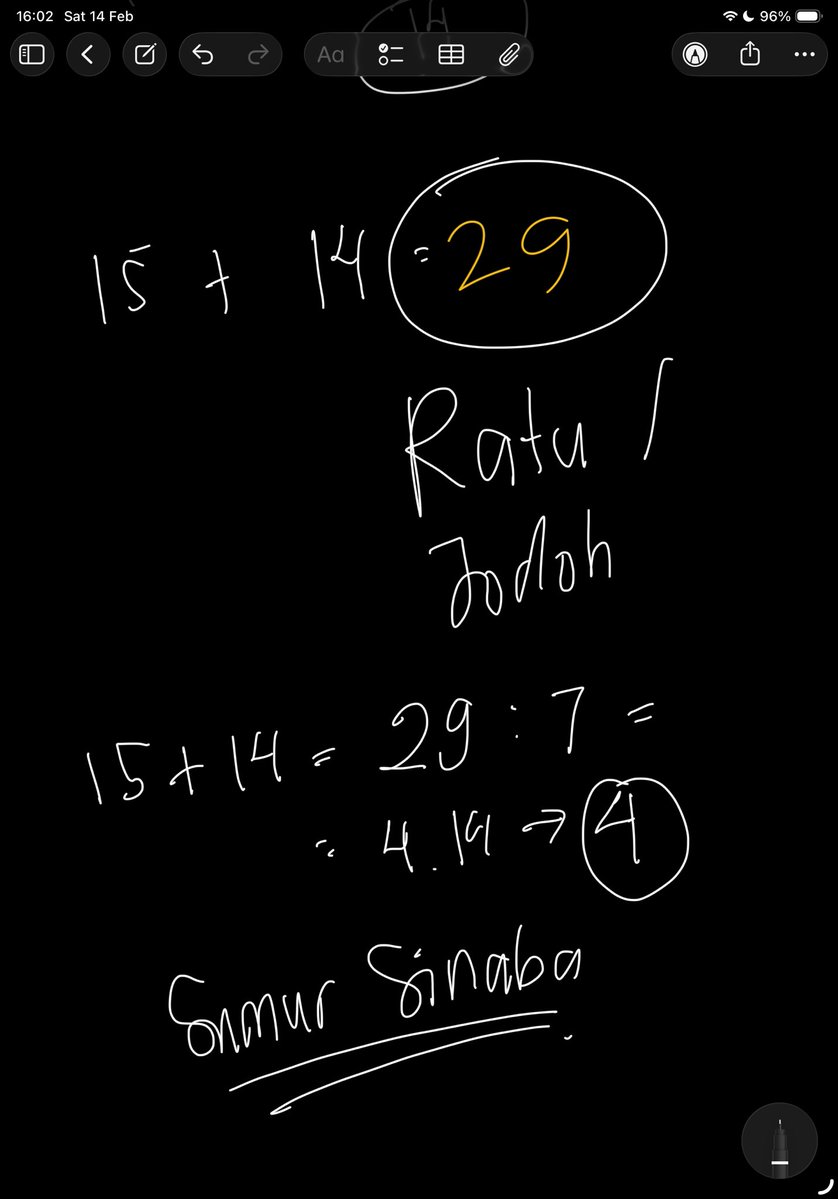 16:02 Sat 14 Feb 96%
14
Aa
15 + 14 = 29
Ratu /
Jodoh
15 + 14 = 29 : 7 =
= 4.14 → 4
Sumur Sinaba